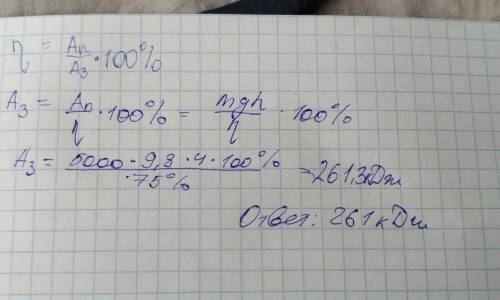 η = Aп/Aз · 100%
Aз = Aп/η · 100% = mgh/η · 100%
Aз = 5000 · 9,8 · 4 · 100%/·75% = 261,3кДж
Ответ: 261 кДж